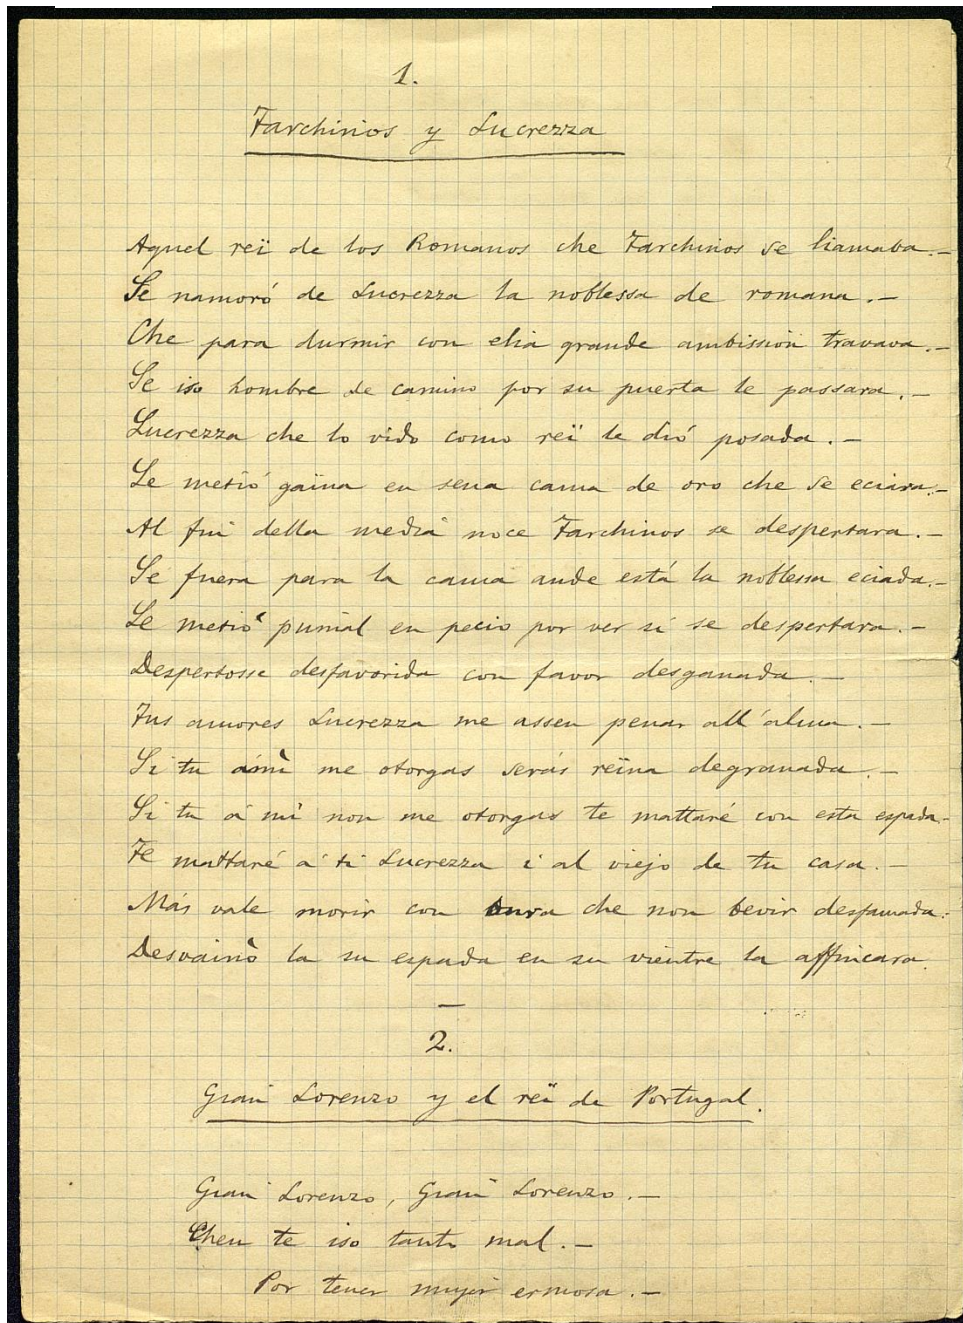 1.
Tarchinios y Lucrezza
Aquel reï de los Romanos che Tarchinos se liamava.—
Se namoró de Lucrezza la noblessa de romana.—
Che para durmir con elia grande ambission travava.—
Se iso hombre de camino por su puerta le passara.—
Lucrezza che lo vido como reï le dió posada.—
Le metió gaïna en sena cama de oro che se eciara.—
Al fin della media noce Tarchinos se despertara.—
Se fuera para la cama ande está la noblessa eciada.—
Le metió punial en pecio por ver si se despertara.—
Despertosse desfavorida con favor desganada.—
Tus amores Lucrezza me assen penar all'alma.—
Si tu ámi me otorgas serás reïna degranada.—
Si tu á mi non me otorgas te mattaré con esta espada.—
Te mattaré á ti Lucrezza i al viejo de tu casa.—
Más vale morir con onra che non bevir desfamada.—
Desvainó la su espada en su vientre la affincara.
—
2.
Gian Lorenzo y el reï de Portugal.
Gian Lorenzo, Gian Lorenzo.—
Chen te iso tanto mal.—
Por tener mujer ermosa.—